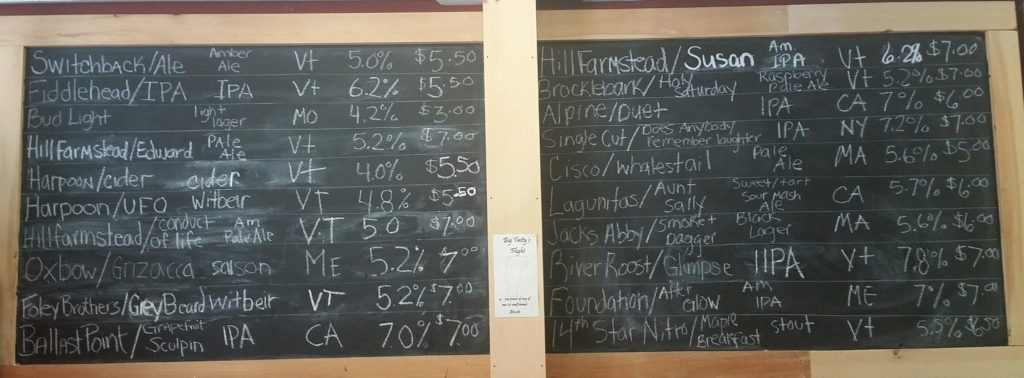 Switchback/Ale Amber Ale Vt 5.0% $5.50
Fiddlehead/IPA IPA Vt 6.2% $5.50
Bud Light light lager MO 4.2% $3.00
Hill Farmstead/Edward Pale Ale Vt 5.2% $7.00
Harpoon/cider cider Vt 4.0% $5.50
Harpoon/UFO Witbeir VT 4.8% $5.50
Hillfarmstead/conduct of life Am Pale Ale V.T 5.0 $7.00
Oxbow/Grizacca saison ME 5.2% 7.00
Foley Brothers/Grey Beard Witbeir VT 5.2% $7.00
Ballast Point/Grapefruit Sculpin IPA CA 7.0% $7.00
Big Fatty's
Flight
$10.00
Hill Farmstead/Susan Am IPA Vt 6.2% $7.00
Brocklebank/Holy Saturday Raspberry Pale Ale Vt 5.2% $7.00
Alpine/Duet IPA CA 7% $6.00
Single Cut/Does Anybody remember laughter IPA NY 7.2% $7.00
Cisco/Whalestail Pale Ale MA 5.6% $5.00
Lagunitas/Aunt Sally Sweet/tart Sour Mash Ale CA 5.7% $6.00
Jacks Abby/Smoke + Dagger Black Lager MA 5.6% $6.00
River Roost/Glimpse IIPA Vt 7.8% $7.00
Foundation/After Glow Am IPA ME 7% $7.00
14th Star Nitro/Maple Breakfast stout Vt 5.5% $6.50